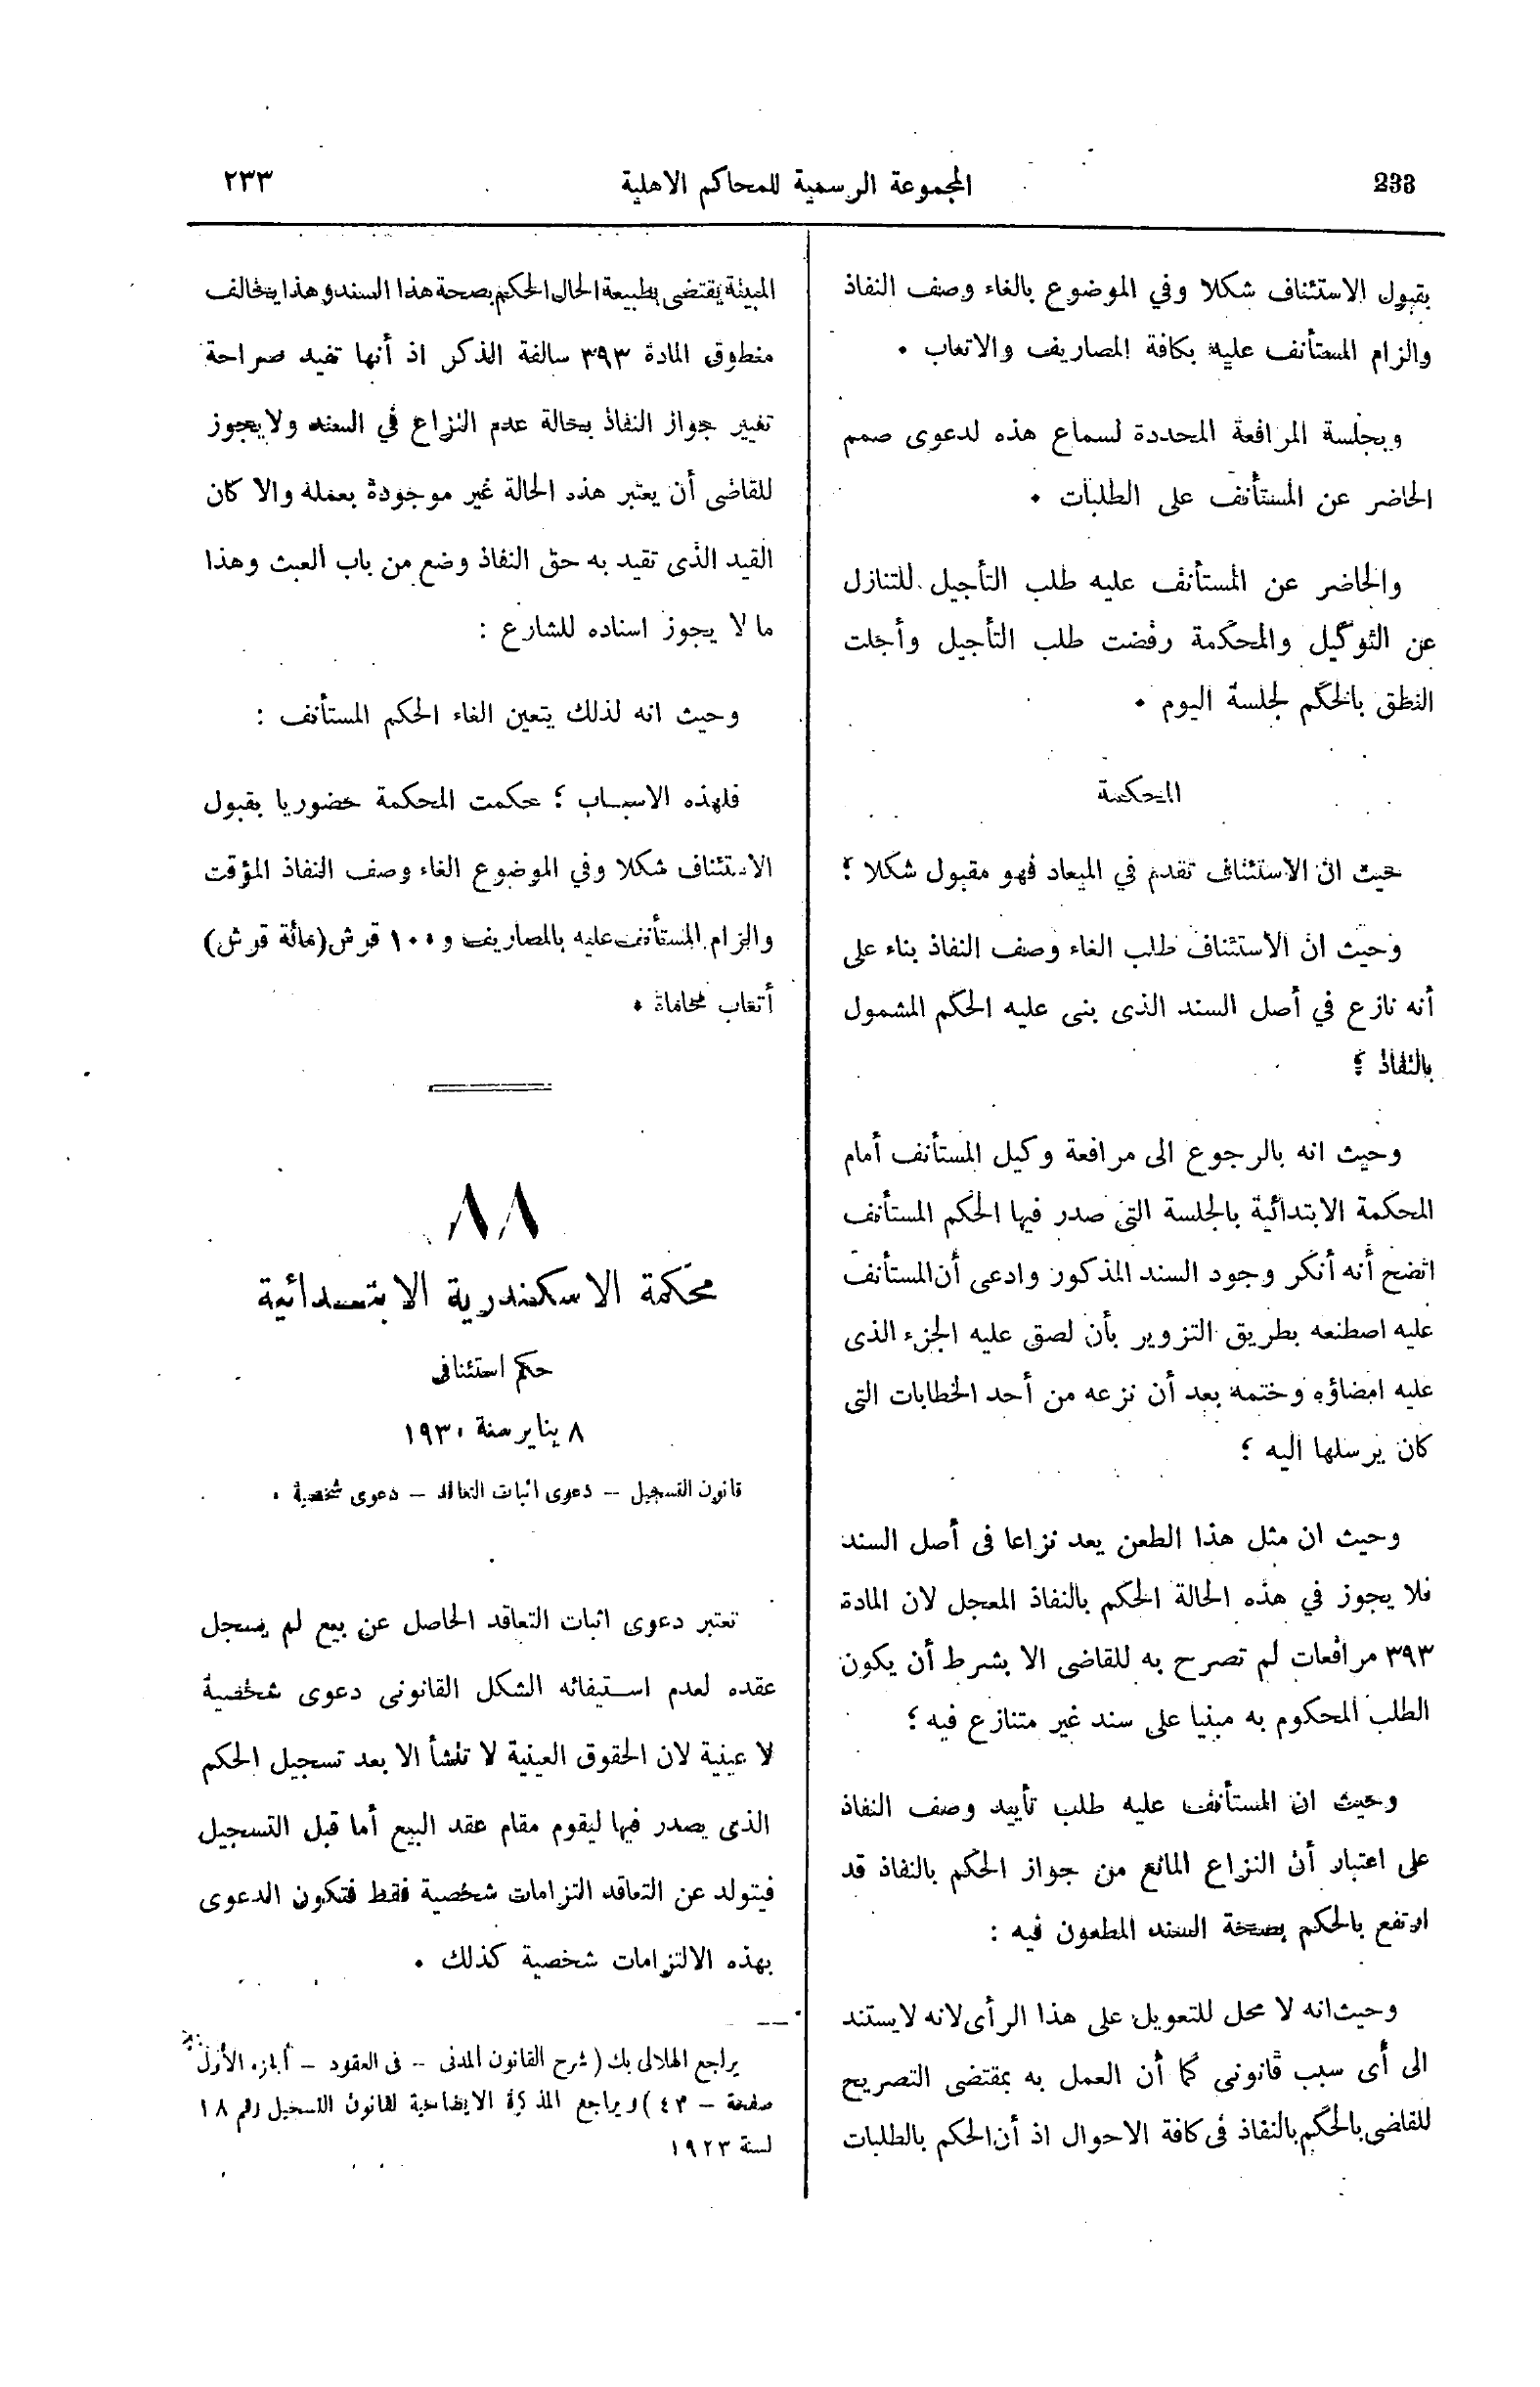 233
المجموعة الرسمية للمحاكم الاهلية
٢٣٣
بقبول الاستئناف شكلا وفي الموضوع بالغاء وصف النفاذ
والزام المستأنف عليه بكافة المصاريف والاتعاب .
وبجلسة المرافعة المحددة لسماع هذه لدعوى صمم
الحاضر عن المستأنف على الطلبات .
والحاضر عن المستأنف عليه طلب التأجيل للتنازل
عن التوكيل والمحكمة رفضت طلب التأجيل وأجلت
النطق بالحكم لجلسة اليوم .
المحكمة
حيث ان الاستئناف تقدم في الميعاد فهو مقبول شكلا ؛
وحيث ان الاستئناف طلب الغاء وصف النفاذ بناء على
أنه نازع في أصل السند الذى بنى عليه الحكم المشمول
بالنفاذ ؛
وحيث انه بالرجوع الى مرافعة وكيل المستأنف أمام
المحكمة الابتدائية بالجلسة التى صدر فيها الحكم المستأنف
اتضح أنه أنكر وجود السند المذكور وادعى أن المستأنف
عليه اصطنعه بطريق التزوير بأن لصق عليه الجزء الذى
عليه امضاؤه وختمه بعد أن نزعه من أحد الخطابات التى
كان يرسلها اليه ؛
وحيث ان مثل هذا الطعن يعد نزاعا فى أصل السند
فلا يجوز في هذه الحالة الحكم بالنفاذ المعجل لان المادة
٣٩٣ مرافعات لم تصرح به للقاضى الا بشرط أن يكون
الطلب المحكوم به مبنيا على سند غير متنازع فيه ؛
وحيث ان المستأنف عليه طلب تأييد وصف النفاذ
على اعتبار أن النزاع المانع من جواز الحكم بالنفاذ قد
ارتفع بالحكم بصحة السند المطعون فيه :
وحيث انه لا محل للتعويل على هذا الرأى لانه لا يستند
الى أى سبب قانونى كما أن العمل به بمقتضى التصريح
للقاضى بالحكم بالنفاذ فى كافة الاحوال اذ أن الحكم بالطلبات
المبينة يقتضى بطبيعة الحال الحكم بصحة هذا السند وهذا يخالف
منطوق المادة ٣٩٣ سالفة الذكر اذ أنها تفيد صراحة
تغيير جواز النفاذ بحالة عدم النزاع في السند ولا يجوز
للقاضى أن يعتبر هذه الحالة غير موجودة بعمله والا كان
القيد الذى تقيد به حق النفاذ وضع من باب العبث وهذا
ما لا يجوز اسناده للشارع :
وحيث انه لذلك يتعين الغاء الحكم المستأنف :
فلهذه الاسباب ؛ حكمت المحكمة حضوريا بقبول
الاستئناف شكلا وفي الموضوع الغاء وصف النفاذ المؤقت
والزام المستأنف عليه بالمصاريف و ١٠٠ قرش (مائة قرش)
أتعاب محاماة .
٨٨
محكمة الاسكندرية الابتدائية
حكم استئنافى
٨ يناير سنة ١٩٣٠
قانون التسجيل -- دعوى اثبات التعاقد -- دعوى شخصية .
تعتبر دعوى اثبات التعاقد الحاصل عن بيع لم يسجل
عقده لعدم استيفائه الشكل القانونى دعوى شخصية
لا عينية لان الحقوق العينية لا تنشأ الا بعد تسجيل الحكم
الذى يصدر فيها ليقوم مقام عقد البيع أما قبل التسجيل
فيتولد عن التعاقد التزامات شخصية فقط فتكون الدعوى
بهذه الالتزامات شخصية كذلك .
يراجع الهلالى بك (شرح القانون المدنى -- فى العقود -- الجزء الأول
صفحة -- ٤٣) ويراجع المذكرة الايضاحية لقانون التسجيل رقم ١٨
لسنة ١٩٢٣